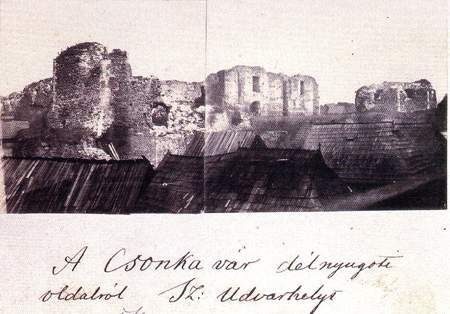 A Csonka vár délnyugoti
oldalról Sz: Udvarhelyt